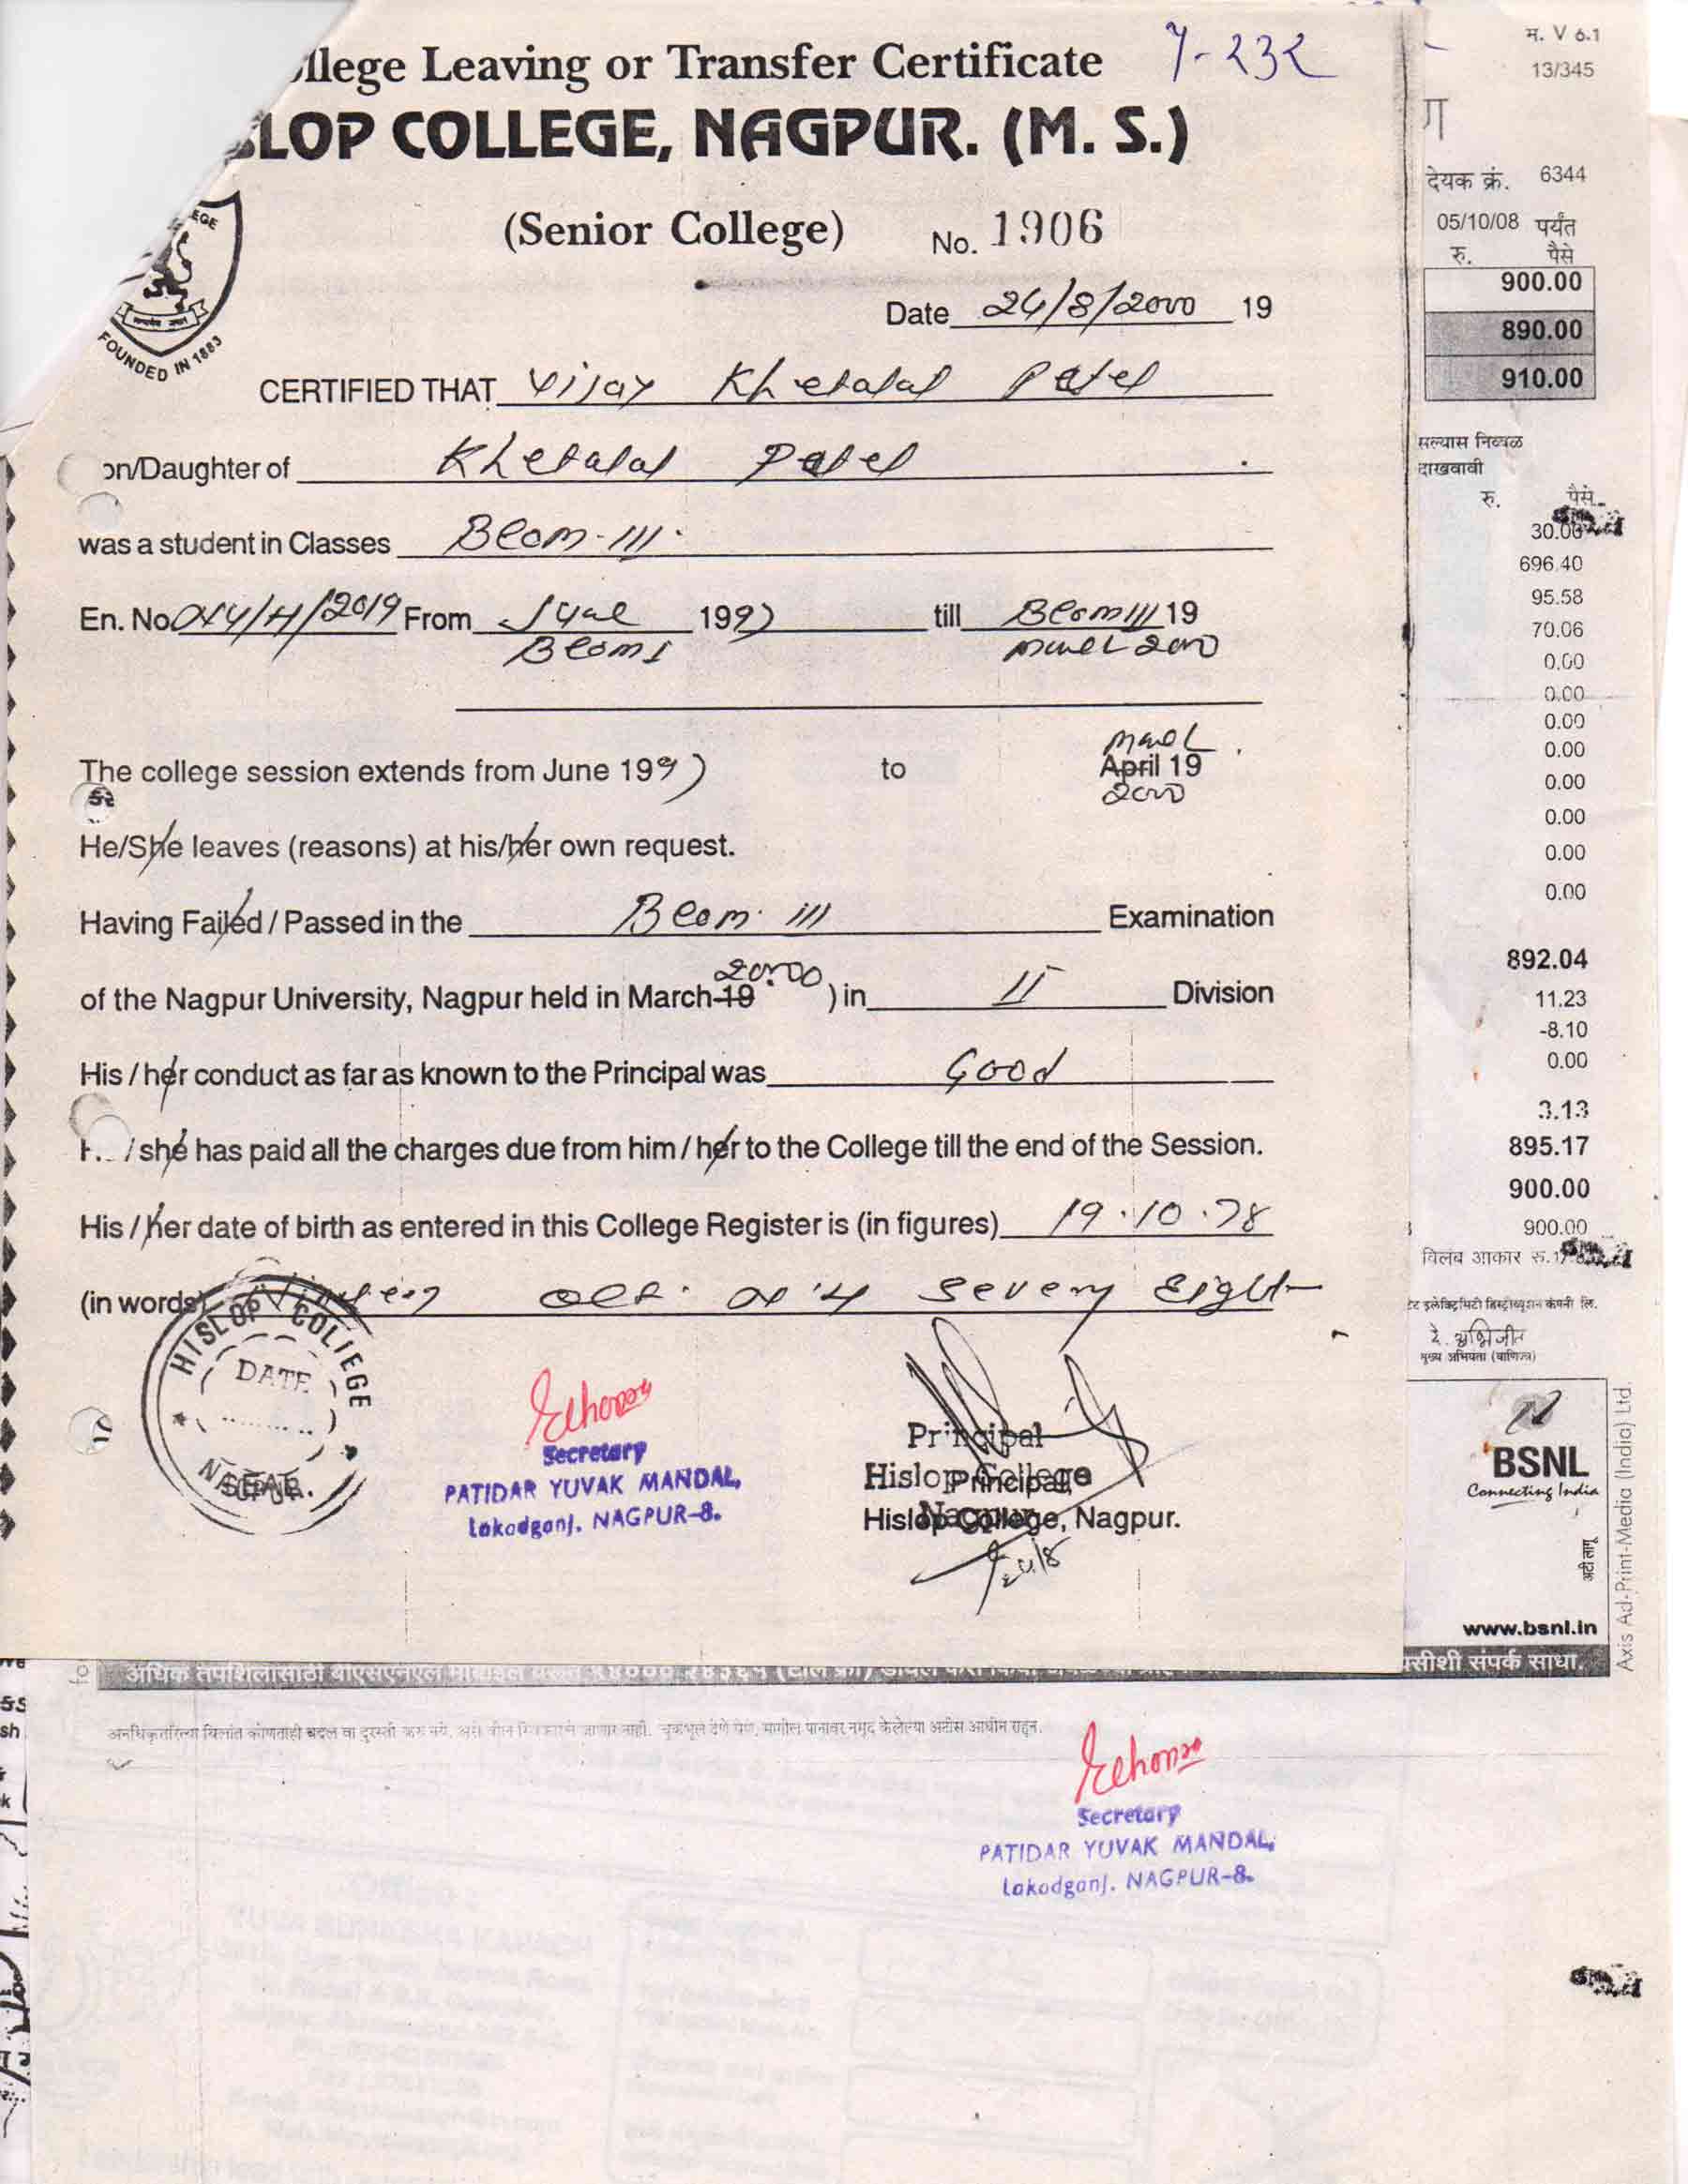 llege Leaving or Transfer Certificate 7-232
LOP COLLEGE, NAGPUR. (M. S.)
(Senior College) No. 1906
EGE
FOUNDED IN 1883
Date 24/8/2000 19
CERTIFIED THAT Vijay Khetalal Patel
on/Daughter of Khetalal Patel
was a student in Classes Bcom-III.
En. No From June 1997 till Bcom III 19
Bcom I March 2000
March
The college session extends from June 1997 to April 19
2000
He/She leaves (reasons) at his/her own request.
Having Failed / Passed in the Bcom III Examination
2000
of the Nagpur University, Nagpur held in March-19 ) in II Division
His / her conduct as far as known to the Principal was Good
/ she has paid all the charges due from him / her to the College till the end of the Session.
His / her date of birth as entered in this College Register is (in figures) 19.10.78
(in words) Ninteen Oct. Seventy Eight
HISLOP COLLEGE
DATE
NAGPUR
SEAL.
Secretary
PATIDAR YUVAK MANDAL,
Lakadganj. NAGPUR-8.
Principal
Hislop College
Nagpur
Principal,
Hislop College, Nagpur.
म. V 6.1
13/345
ग
देयक क्रं. 6344
05/10/08 पर्यंत
रु. पैसे
900.00
890.00
910.00
सल्यास निव्वळ
दाखवावी
रु. पैसे
30.00
696.40
95.58
70.06
0.00
0.00
0.00
0.00
0.00
0.00
0.00
0.00
892.04
11.23
-8.10
0.00
3.13
895.17
900.00
900.00
विलंब आकार रु.
इलेक्ट्रिसिटी डिस्ट्रीब्यूशन कंपनी लि.
मुख्य अभियंता (वाणिज्य)
BSNL
Connecting India
अटी लागू
www.bsnl.in
Axis Ad-Print-Media (India) Ltd.
सीशी संपर्क साधा.
अधिक तपशिलासाठी बीएसएनएल मोबाइल
अनधिकृतरित्या बिलांत कोणताही बदल वा दुरुस्ती करु नये, मागील पानावर नमूद केलेल्या अटीस आधीन राहून.
Secretary
PATIDAR YUVAK MANDAL,
Lakadganj. NAGPUR-8.